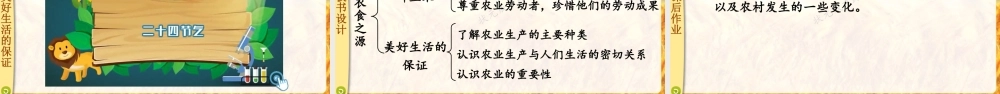 好生活的保证
二十四节气
书设计
衣食之源
尊重农业劳动者，珍惜他们的劳动成果
美好生活的
保证
了解农业生产的主要种类
认识农业生产与人们生活的密切关系
认识农业的重要性
后作业
以及农村发生的一些变化。